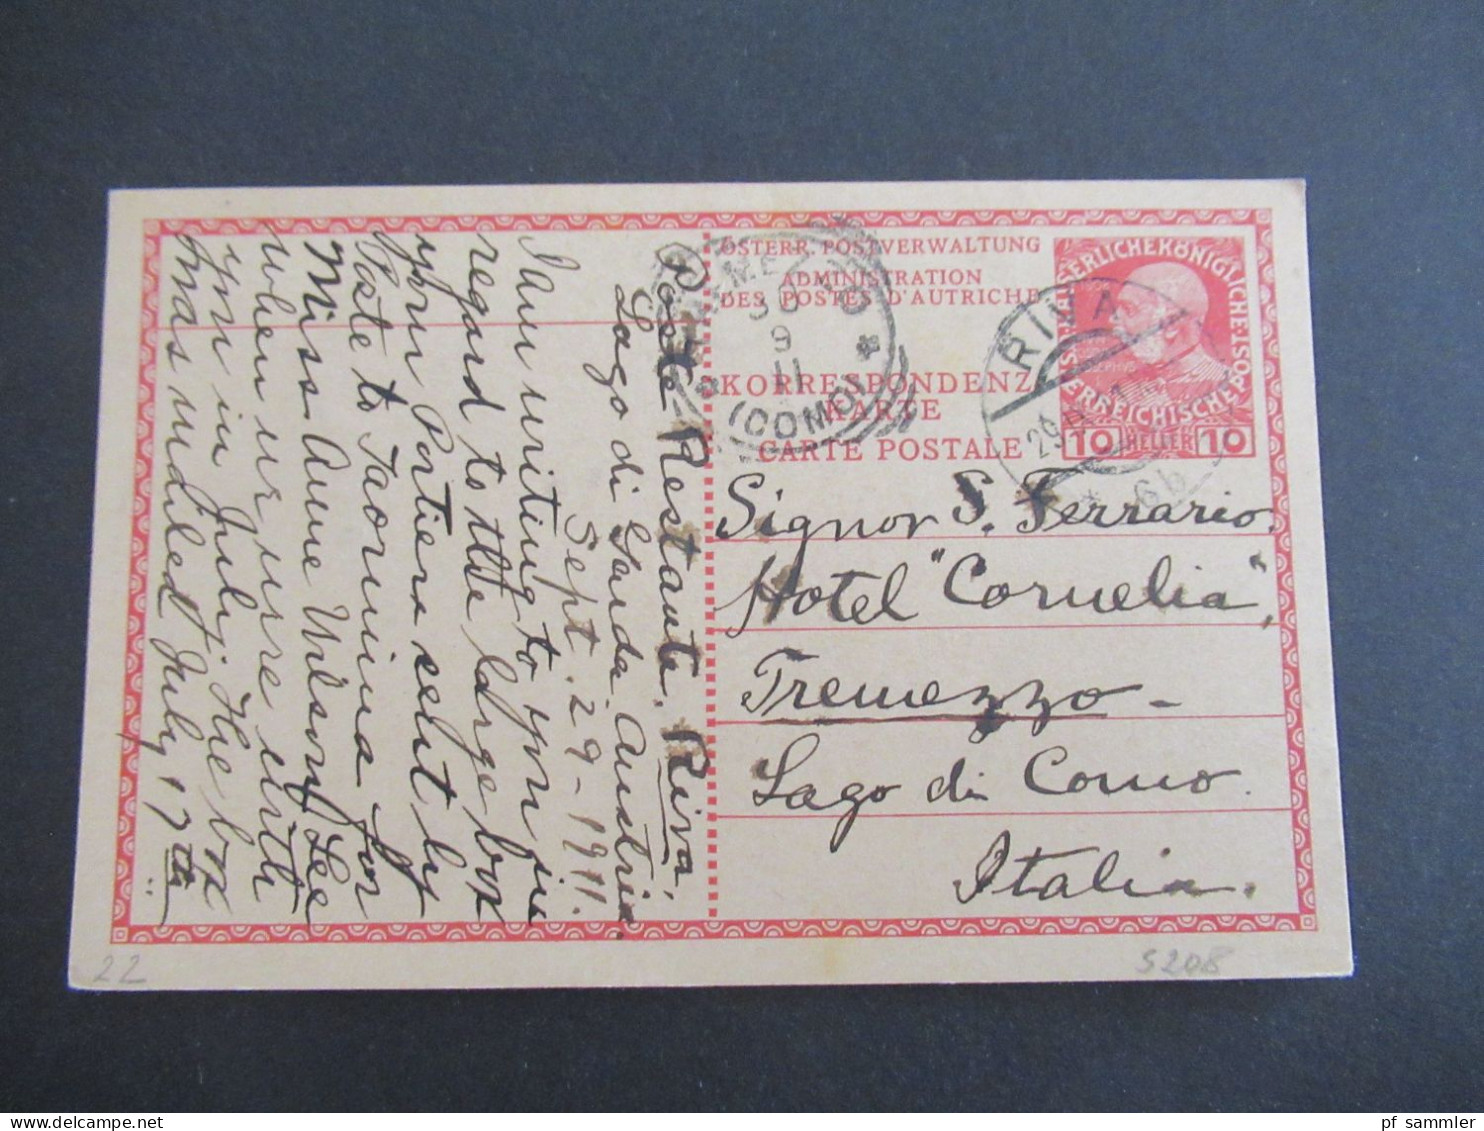 ÖSTERR. POSTVERWALTUNG
ADMINISTRATION
DES POSTES D'AUTRICHE
KORRESPONDENZ-
KARTE
CARTE POSTALE
KAISERLICHEKÖNIGLICHE
ÖSTERREICHISCHE POST
10 HELLER 10
RIVA
29
6b
30
9
11
(COMO)
Signor S. Ferrario.
Hotel "Cornelia",
Tremezzo -
Lago di Como.
Italia.
Poste Restante, Riva,
Lago di Garda, Austria.
Sept. 29 - 1911.
I am writing to you in
regard to the large box
your Portiere sent by
Poste to Taormina for
Miss Anne Wilson Lee
when we were with
you in July. The box
was mailed July 17th
22
S208
pf sammler